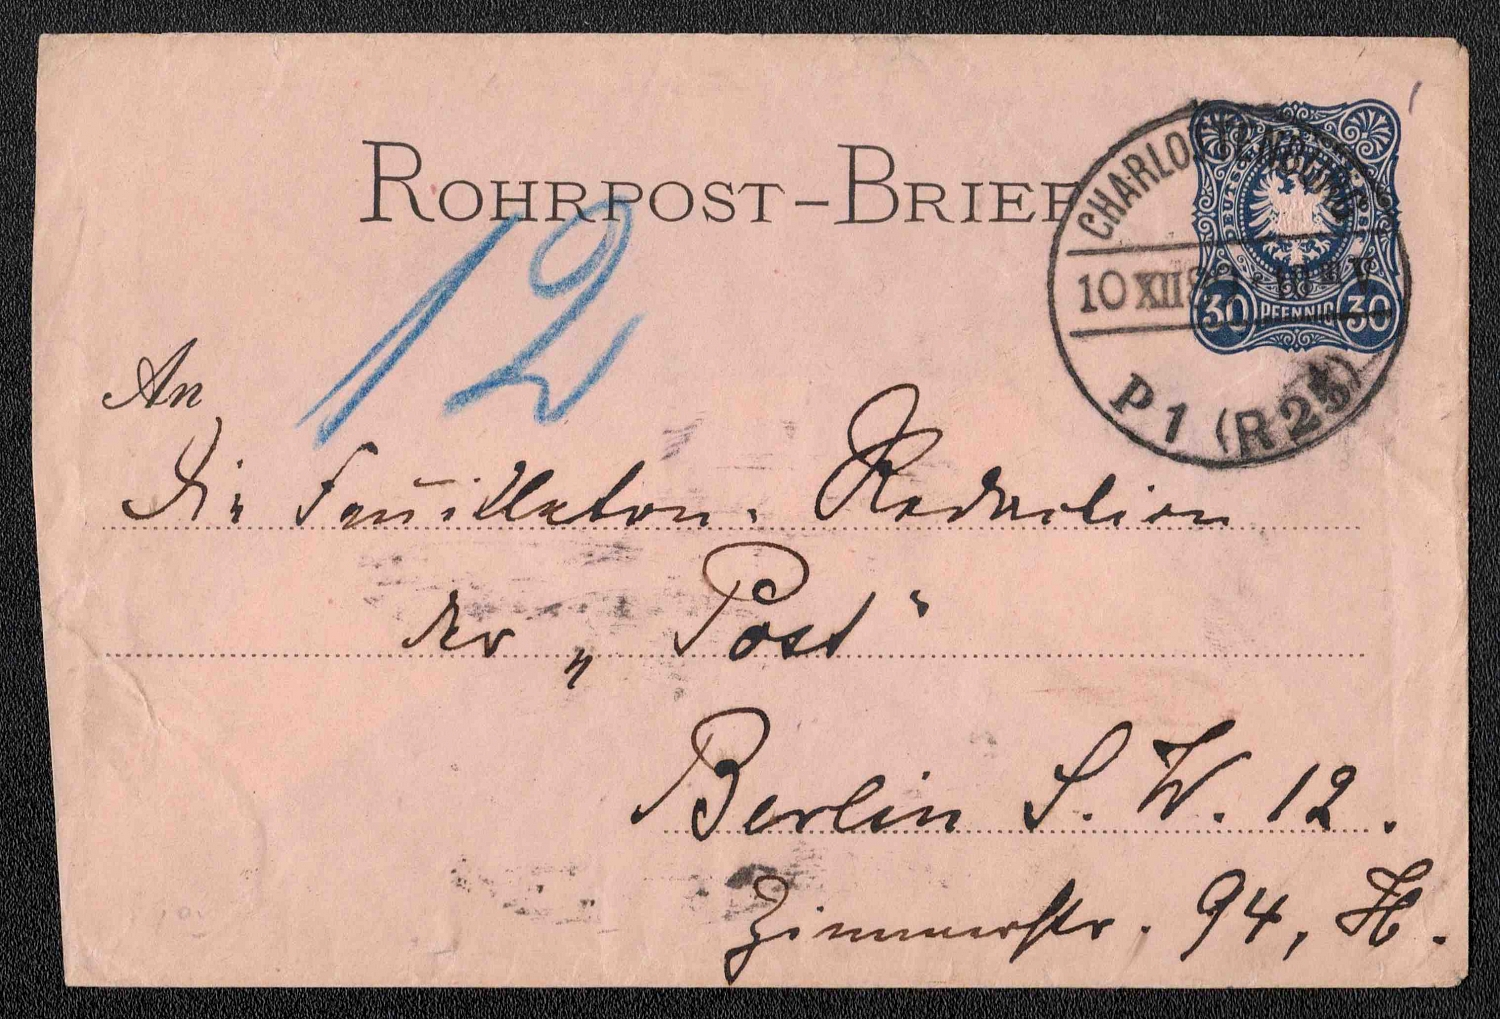 ROHRPOST-BRIEF
CHARLOTTENBURG
10 XII 8 10 V
P 1 (R 25)
PFENNIG
30 30
12
An
Die Feuilleton-Redaction
der „Post“
Berlin S. W. 12.
Zimmerstr. 94, H.